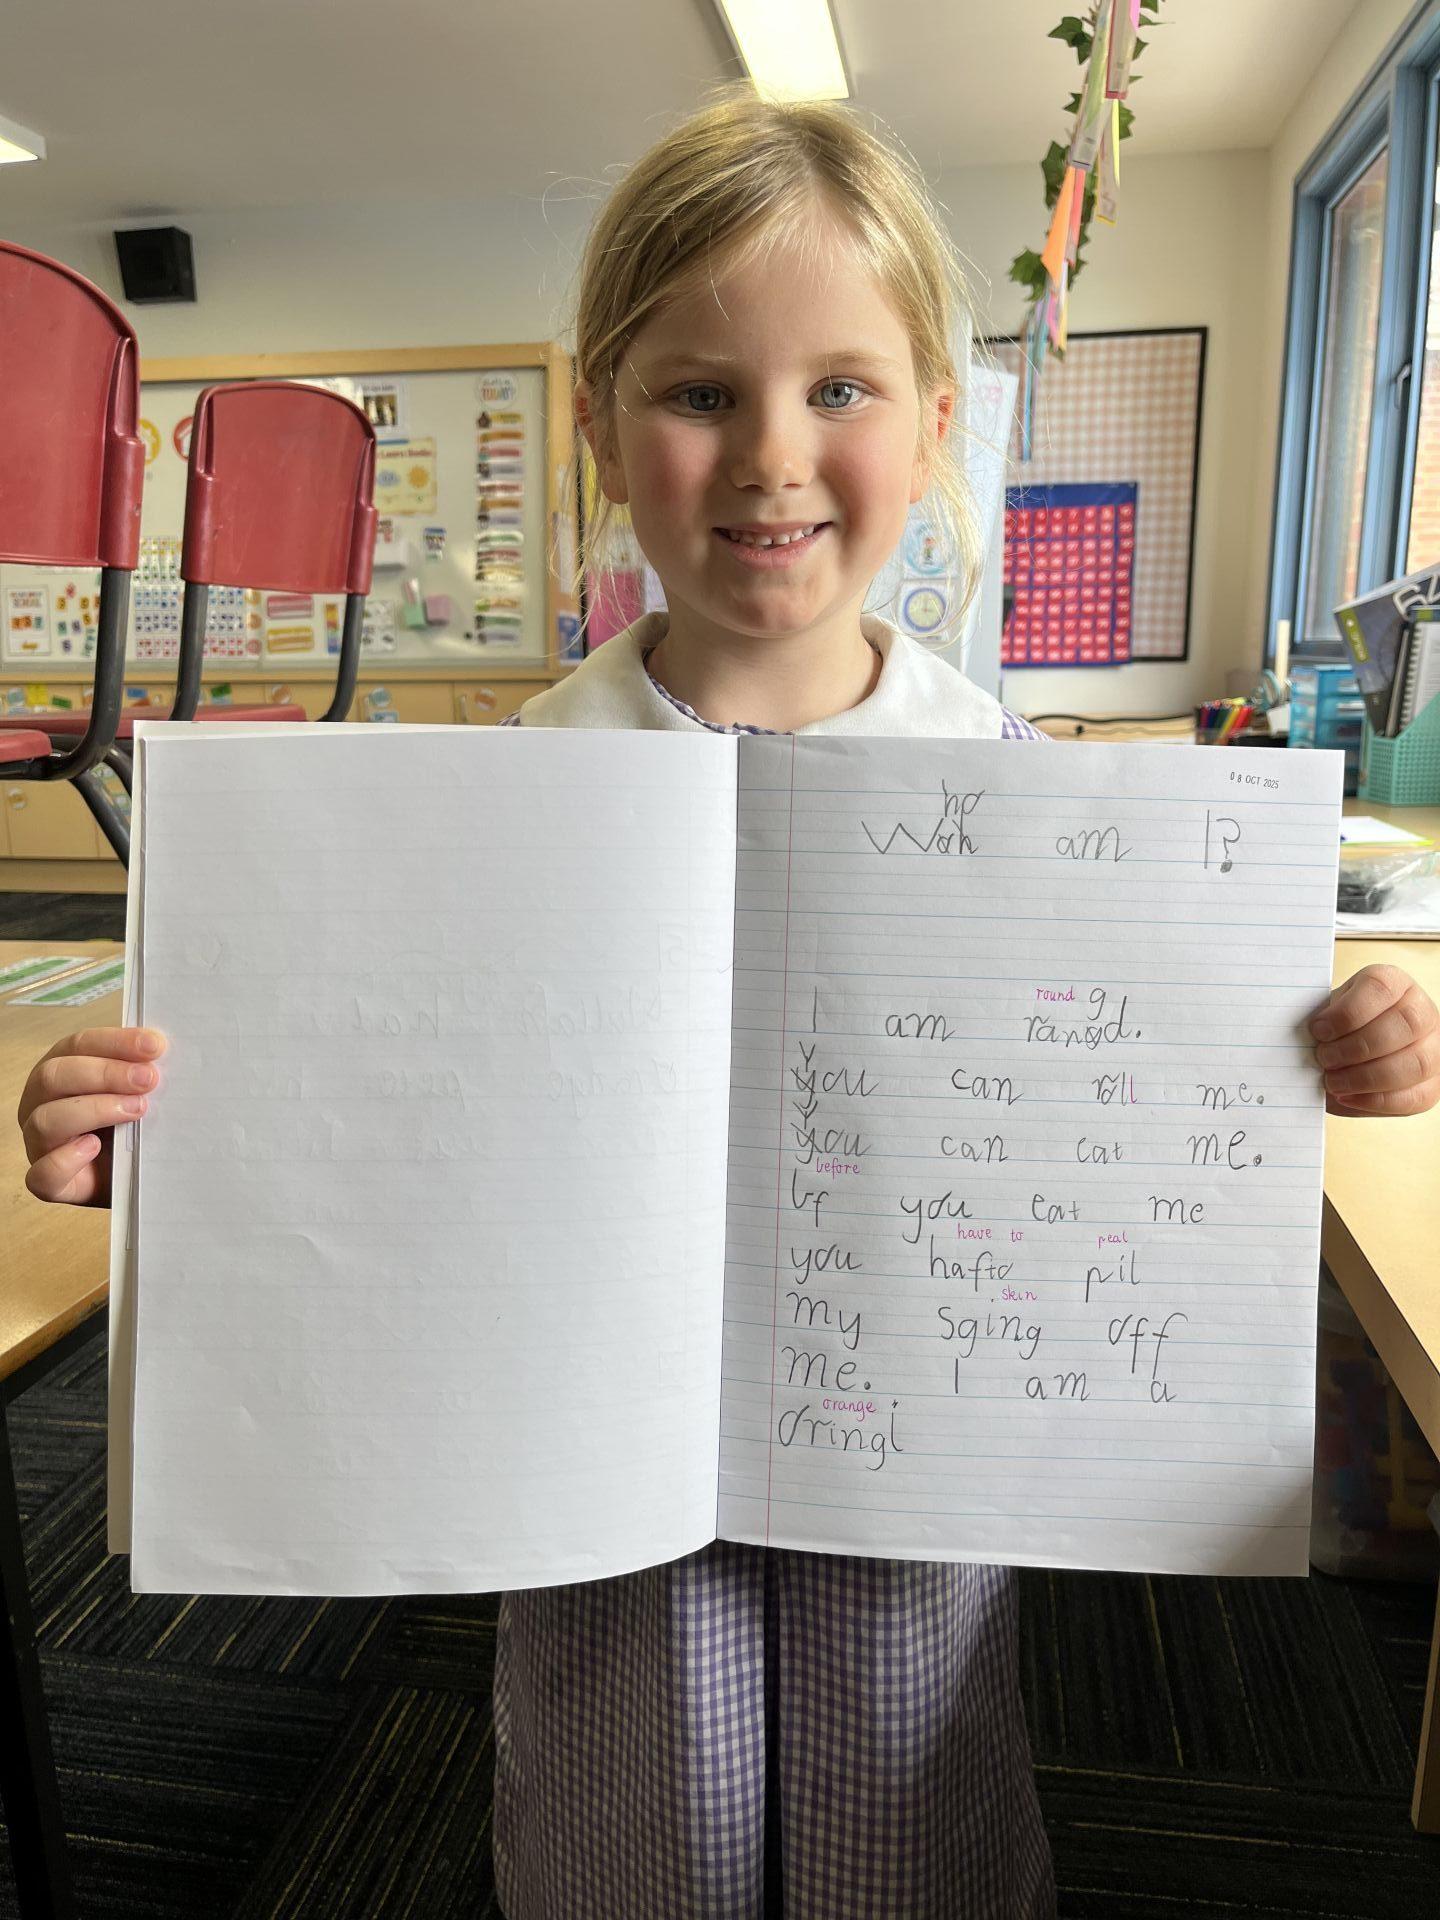 08 OCT 2025
ho
Woh am I?
round g
I am rangd.
You can roll me.
You can eat me.
before
bf you eat me
have to peal
you hafto pil
skin
my sging off
me. I am a
orange
oringi